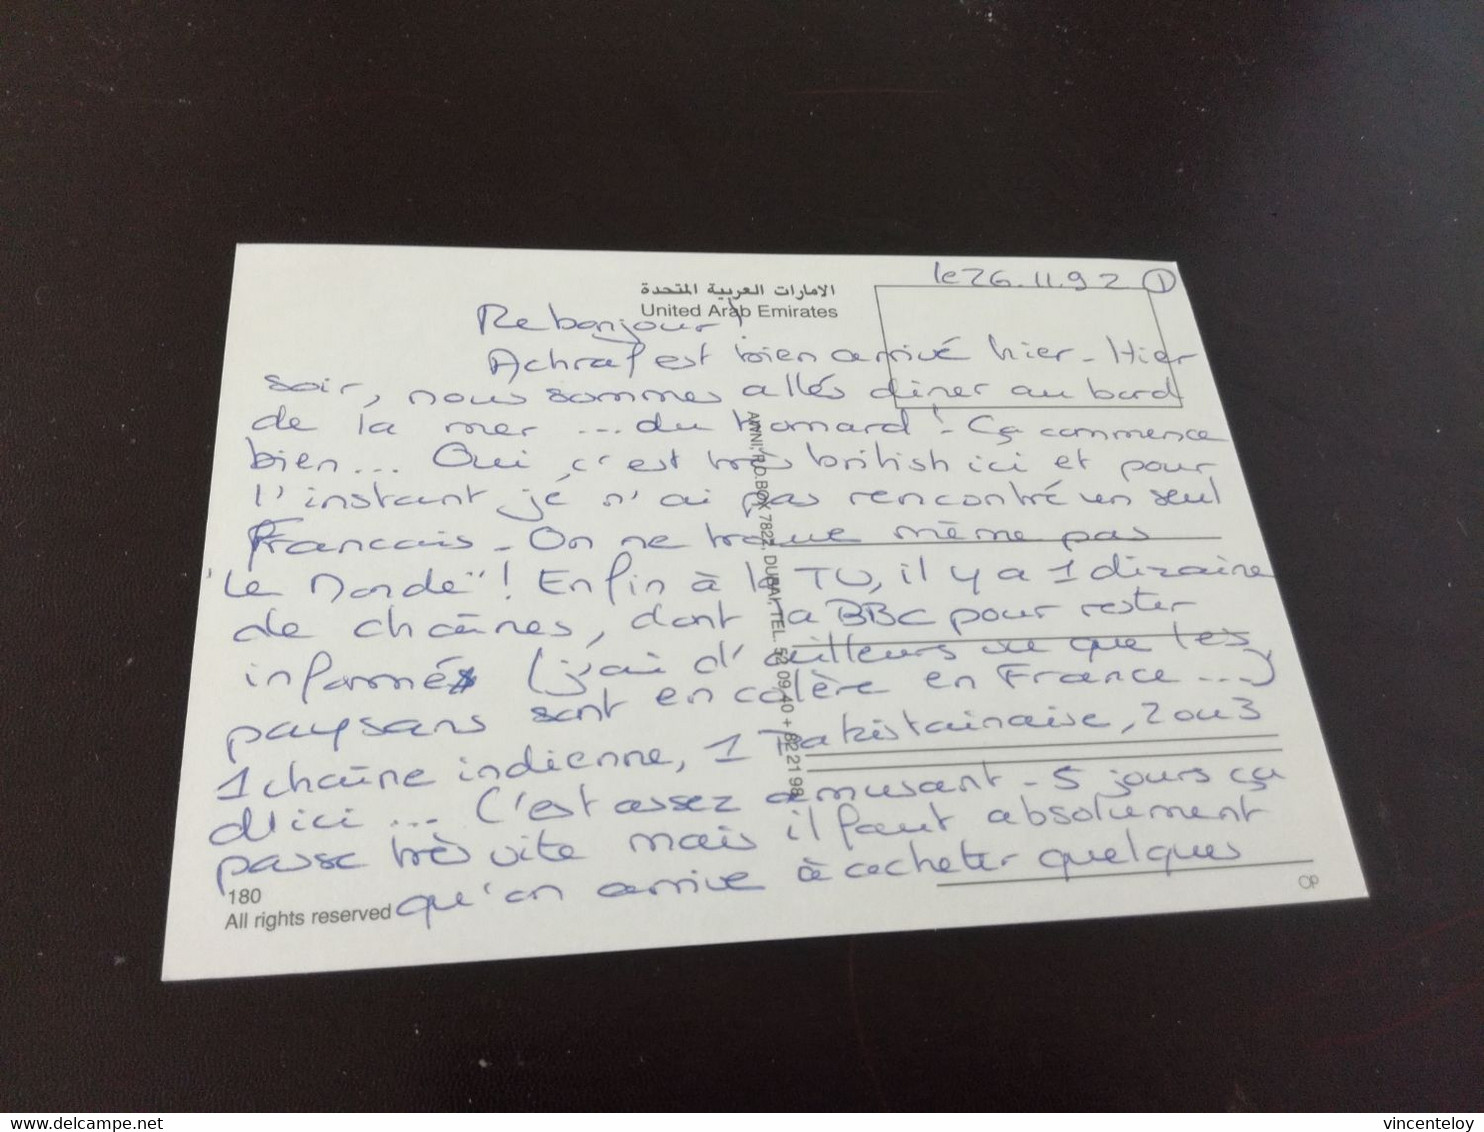 le 26.11.92 ①
الامارات العربية المتحدة
United Arab Emirates
Rebonjour !
Achraf est bien arrivé hier - Hier
soir, nous sommes allés dîner au bord
de la mer ... du homard ! Ça commence
bien ... Oui, c'est très british ici et pour
l'instant je n'ai pas rencontré un seul
Français - On ne trouve même pas
"Le Monde" ! Enfin à la TV, il y a 1 dizaine
de chaînes, dont la BBC pour rester
informés (j'ai d'ailleurs vu que les
paysans sont en colère en France ...)
1 chaîne indienne, 1 Pakistainaise, 2 ou 3
d'ici ... C'est assez amusant - 5 jours ça
passe très vite mais il faut absolument
qu'on arrive à acheter quelques
P.O.BOX 7822, DUBAI, TEL. 52 09 40 + 82 21 98
180
All rights reserved
OP
delcampe.net
vincenteloy